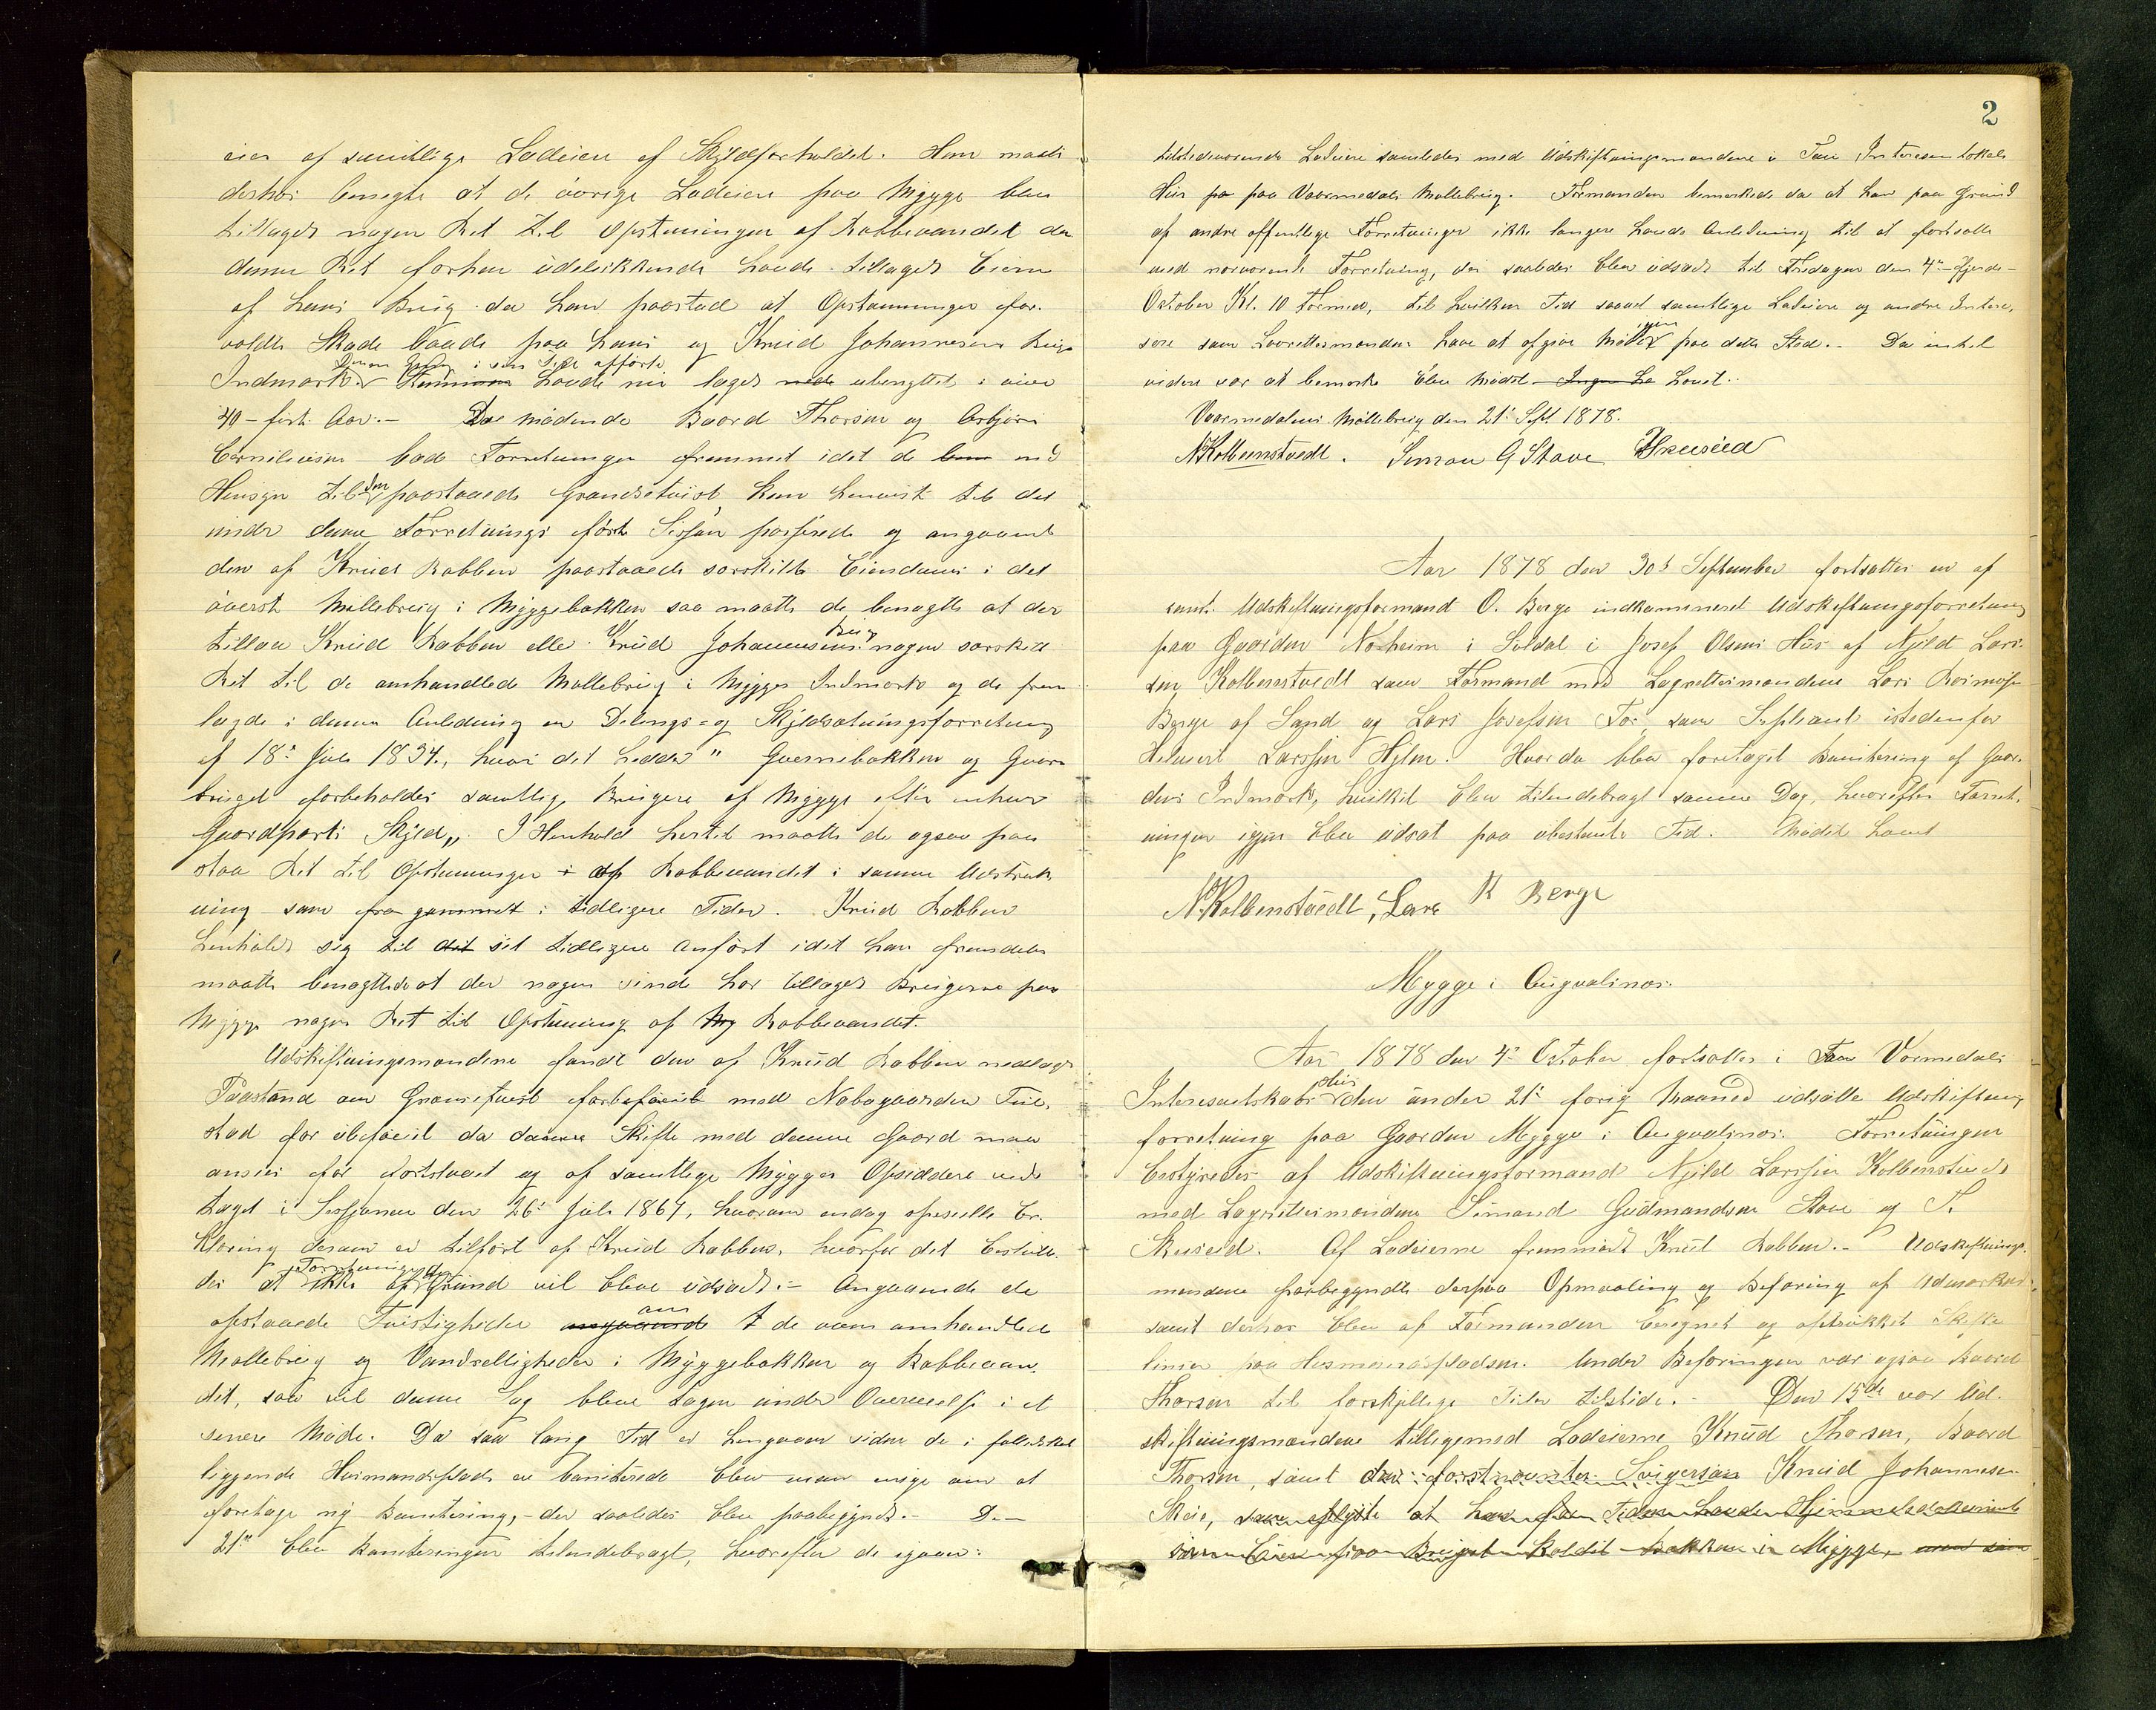 eier af samtlige Lodeiere af Skyldforholdet. Han maatte
derhos benegte at de øvrige Lodeiere paa Mygge blev
tillagt nogen Ret til Opstemningen af Rabbevandet da
denne Ret forhen udelukkende havde tillagt Eieren
af hans Brug da han paastod at Opstemningen for-
voldte Skade baade paa hans og Knud Johannesens Brugs
i sin Tid opførte
Indmark havde nu laget ubenyttet i over
40 - førti Aar.- De mødende Baard Thorsen og Asbjørn
Corneliusen bad Forretningen fremmet idet de med
Hensyn til den paastaaede Grændsetvist kun henviste til det
under denne Forretning førte Sesjon passerede og angaaende
den af Knud Rabben paastaaede særskilte Eiendom i det
øverste Møllebrug i Myggebakken saa maatte de benægte at der
Brug
tillaa Knud Rabben eller Knud Johannesens nogen særskilt
Ret til de omhandlede Møllebrug i Mygges Indmark og de frem
lagde i denne Anledning en Delings- og Skyldsætningsforretning
af 18de Juli 1834, hvori det hedder "Qvernebakken og Qvern
bruget forbeholdes samtlige Brugere af Mygge efter enhver
Gaardparts Skyld„ I Henhold hertil maatte de ogsaa paa
staa Ret til Opstemningen i af Rabbevandet i samme Udstræk
ning som fra gammelt i tidligere Tider. Knud Rabben
henholdt sig til dit sit tidligere Anført idet han fremdeles
maatte benægte at der nogen sinde har tillagt Brugerne paa
Mygge nogen Ret til Opstemning af My Rabbevandet.
Udskiftningsmændene fandt den af Knud Rabben nedlagte
Paastand om Grænsetvist med Nabogaarden Tue-
stad for ubeføiet da Skifte med denne Gaard maa
ansees for fastslaaet og af samtlige Mygges Opsiddere ved-
taget i Sesjonen den 26de Juli 1867, hvorom endog specielle Er-
klæring desom er tilført af Knud Rabben, hvorfor det besluttede
Forretningen den
des at ikke af Grund vil blive udsat.- Angaaende de
om
opstaaede Tvistigheder angaaende de ovenomhandlede
Møllebrug og Vandrettigheder i Myggebakken og Rabbevan-
det, saa vil denne Sag blive tagen under Overveielse i et
senere Møde. Da saa lang Tid er hengaaet siden de i fællesskab
liggende Husmandsplads er boniterede blev man enige om at
foretage ny Bonitering, der saaledes blev paabegyndt.- Den
21de blev Boniteringen tilendebragt, hvorefter de igaar
2
tilstedeværende Lodeiere samledes med Udskiftningsmændene i Interesentskabets
Hus pa paa Vormedals Møllebrug. Formanden bemærkede da at han paa Grund
af andre offentlige Forretninger ikke længere havde Anledning til at fortsætte
med nærværende Forretning, der saaledes blev udsat til Fredagen den 4de fjerde-
October Kl. 10 Formid, til hvilken Tid saavel samtlige Lodeiere og andre Intere-
igjen
sere som Lagrettesmændene have at afgive Møde paa dette Sted.- Da intet
videre var at bemærke blev Mødet Ingen ha hævet.
Vaarmedalens Møllebrug den 21de Sept 1878.
N Kolbenstvedt. Simon G Stave TSkeiseid
Aar 1878 den 30te September fortsattes en af
const. Udskiftningsformand O. Berge indkommenet Udskiftningsforretning
paa Gaarden Norheim i Suldal i Josef Olsens Hus af Njeld Lars-
sen Kolbenstvedt som Formand med Lagrettesmændene Lars
Berge af Sand og Lars Josefsen som Supleant istedenfor
Helmert Larssen Hylen. Hvor da blev foretaget Bonitering af Gaar-
dens Indmark, hvilket blev tilendebragt samme Dag, hvorefter Forret-
ningen igjen blev udsat paa ubestemt Tid. Mødet hævet
N Kolbenstvedt, Lars R Berge
Mygge i Augvalnes.
Aar 1878 den 4de October fortsattes i Vormedals
Hus
Interesentskabs den under 21de forrig Maaned udsatte Udskiftnings
forretning paa Gaarden Mygge i Augvalnes. Forretningen
bestyredes af Udskiftningsformand Njeld Larssen Kolbenstvedt
med Lagrettesmændene Simond Gudmandsen Stave og T.
Skeiseid. Af Lodeierne fremmødt Knut Rabben.- Udskiftnings-
mændene paabegyndte derpaa Opmaaling og Befaring af Udmarken
samt derhos blev af Formanden beregnet og optrukket Skifte
linier paa Husmandspladsen. Under Befaringen var ogsaa Baard
Thorsen til forskjellige Tider tilstede.- Den 15de var Ud-
skiftningsmændene tilligemed Lodeierne Knud Thorsen, Baard
Thorsen, samt den førstnævntes Svigersøn Knud Johannesen
Skeie, som oplyste at han for Tiden havde Hjemmelsdokument
som Eier paa Bruget kaldet Bakken i Mygge, men som